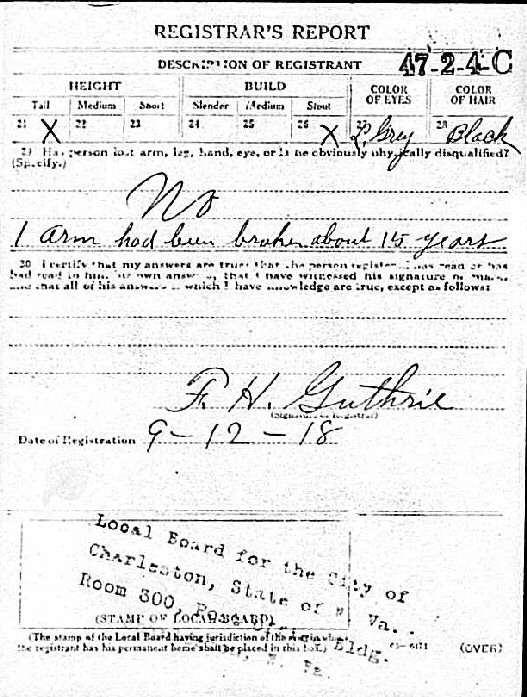 REGISTRAR'S REPORT
47-2-4-C
DESCRIPTION OF REGISTRANT
HEIGHT BUILD COLOR OF EYES COLOR OF HAIR
Tall Medium Short Slender Medium Stout
21 X 22 23 24 25 26 X 27 L. Grey 28 Black
29 Has person lost arm, leg, hand, eye, or is he obviously physically disqualified?
(Specify.)
No
1 arm had been broken about 15 years
30 I certify that my answers are true; that the person registered has read or has
had read to him his own answers; that I have witnessed his signature or mark,
and that all of his answers of which I have knowledge are true, except as follows:
F. H. Guthrie
(Signature of Registrar)
Date of Registration 9-12-18
Local Board for the City of
Charleston, State of W. Va..
Room 300, Bldg.
(STAMP OF LOCAL BOARD)
(The stamp of the Local Board having jurisdiction of the area in which
the registrant has his permanent home shall be placed in this box.)
(OVER)